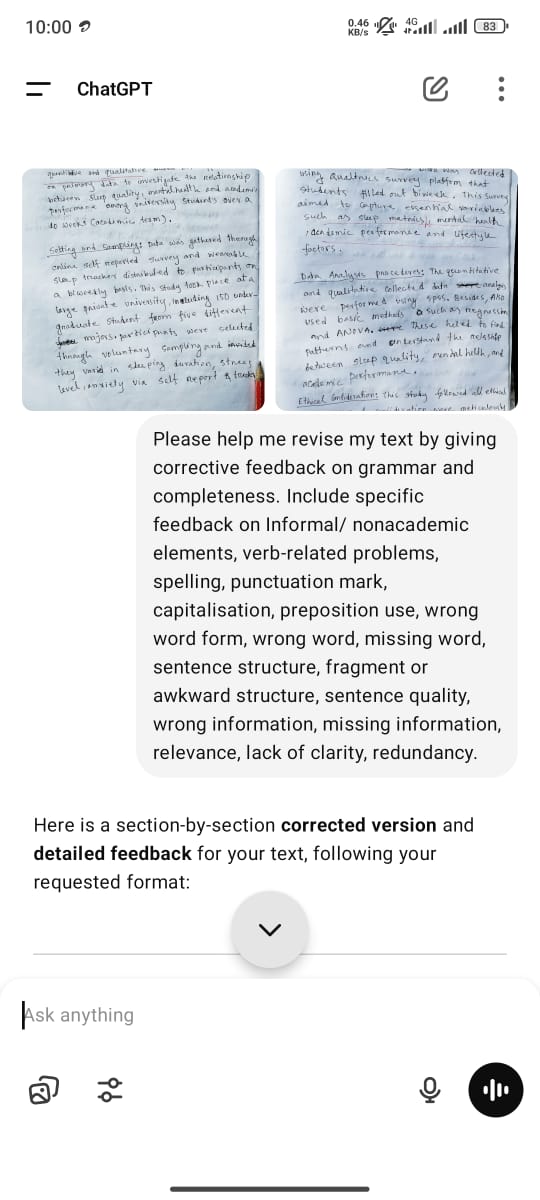 10:00
0.46 KB/s
4G
83
ChatGPT
quantitative and qualitative
on primary data to investigate the relationship
between sleep quality, mental health and academic
performance among university students over a
10 weeks (academic team).
Setting and Sampling: Data was gathered through
online self reported survey and wearable
sleep trackers distributed to participants on
a biweekly basis. This study took place at a
large private university, including 150 under-
graduate student from five different
majors. participants were selected
through voluntary sampling and
they varid in sleeping duration, stress
level, anxiety via self report &
collected
using Qualtrics survey platform that
students filled out biweek. This survey
aimed to capture essential variables
such as sleep metrics, mental health
, academic performance and lifestyle
factors.
Data Analysis procedures: The quantitative
and qualitative collected data
were performed using spss. Besides, Also
used basic methods such as regression
and ANOVA. These heled to find
patturns and understand the
between sleep quality, mental helth, and
academic performance.
Ethical Considerations: This study followed all ethical
meticulously
Please help me revise my text by giving
corrective feedback on grammar and
completeness. Include specific
feedback on Informal/ nonacademic
elements, verb-related problems,
spelling, punctuation mark,
capitalisation, preposition use, wrong
word form, wrong word, missing word,
sentence structure, fragment or
awkward structure, sentence quality,
wrong information, missing information,
relevance, lack of clarity, redundancy.
Here is a section-by-section corrected version and
detailed feedback for your text, following your
requested format:
Ask anything